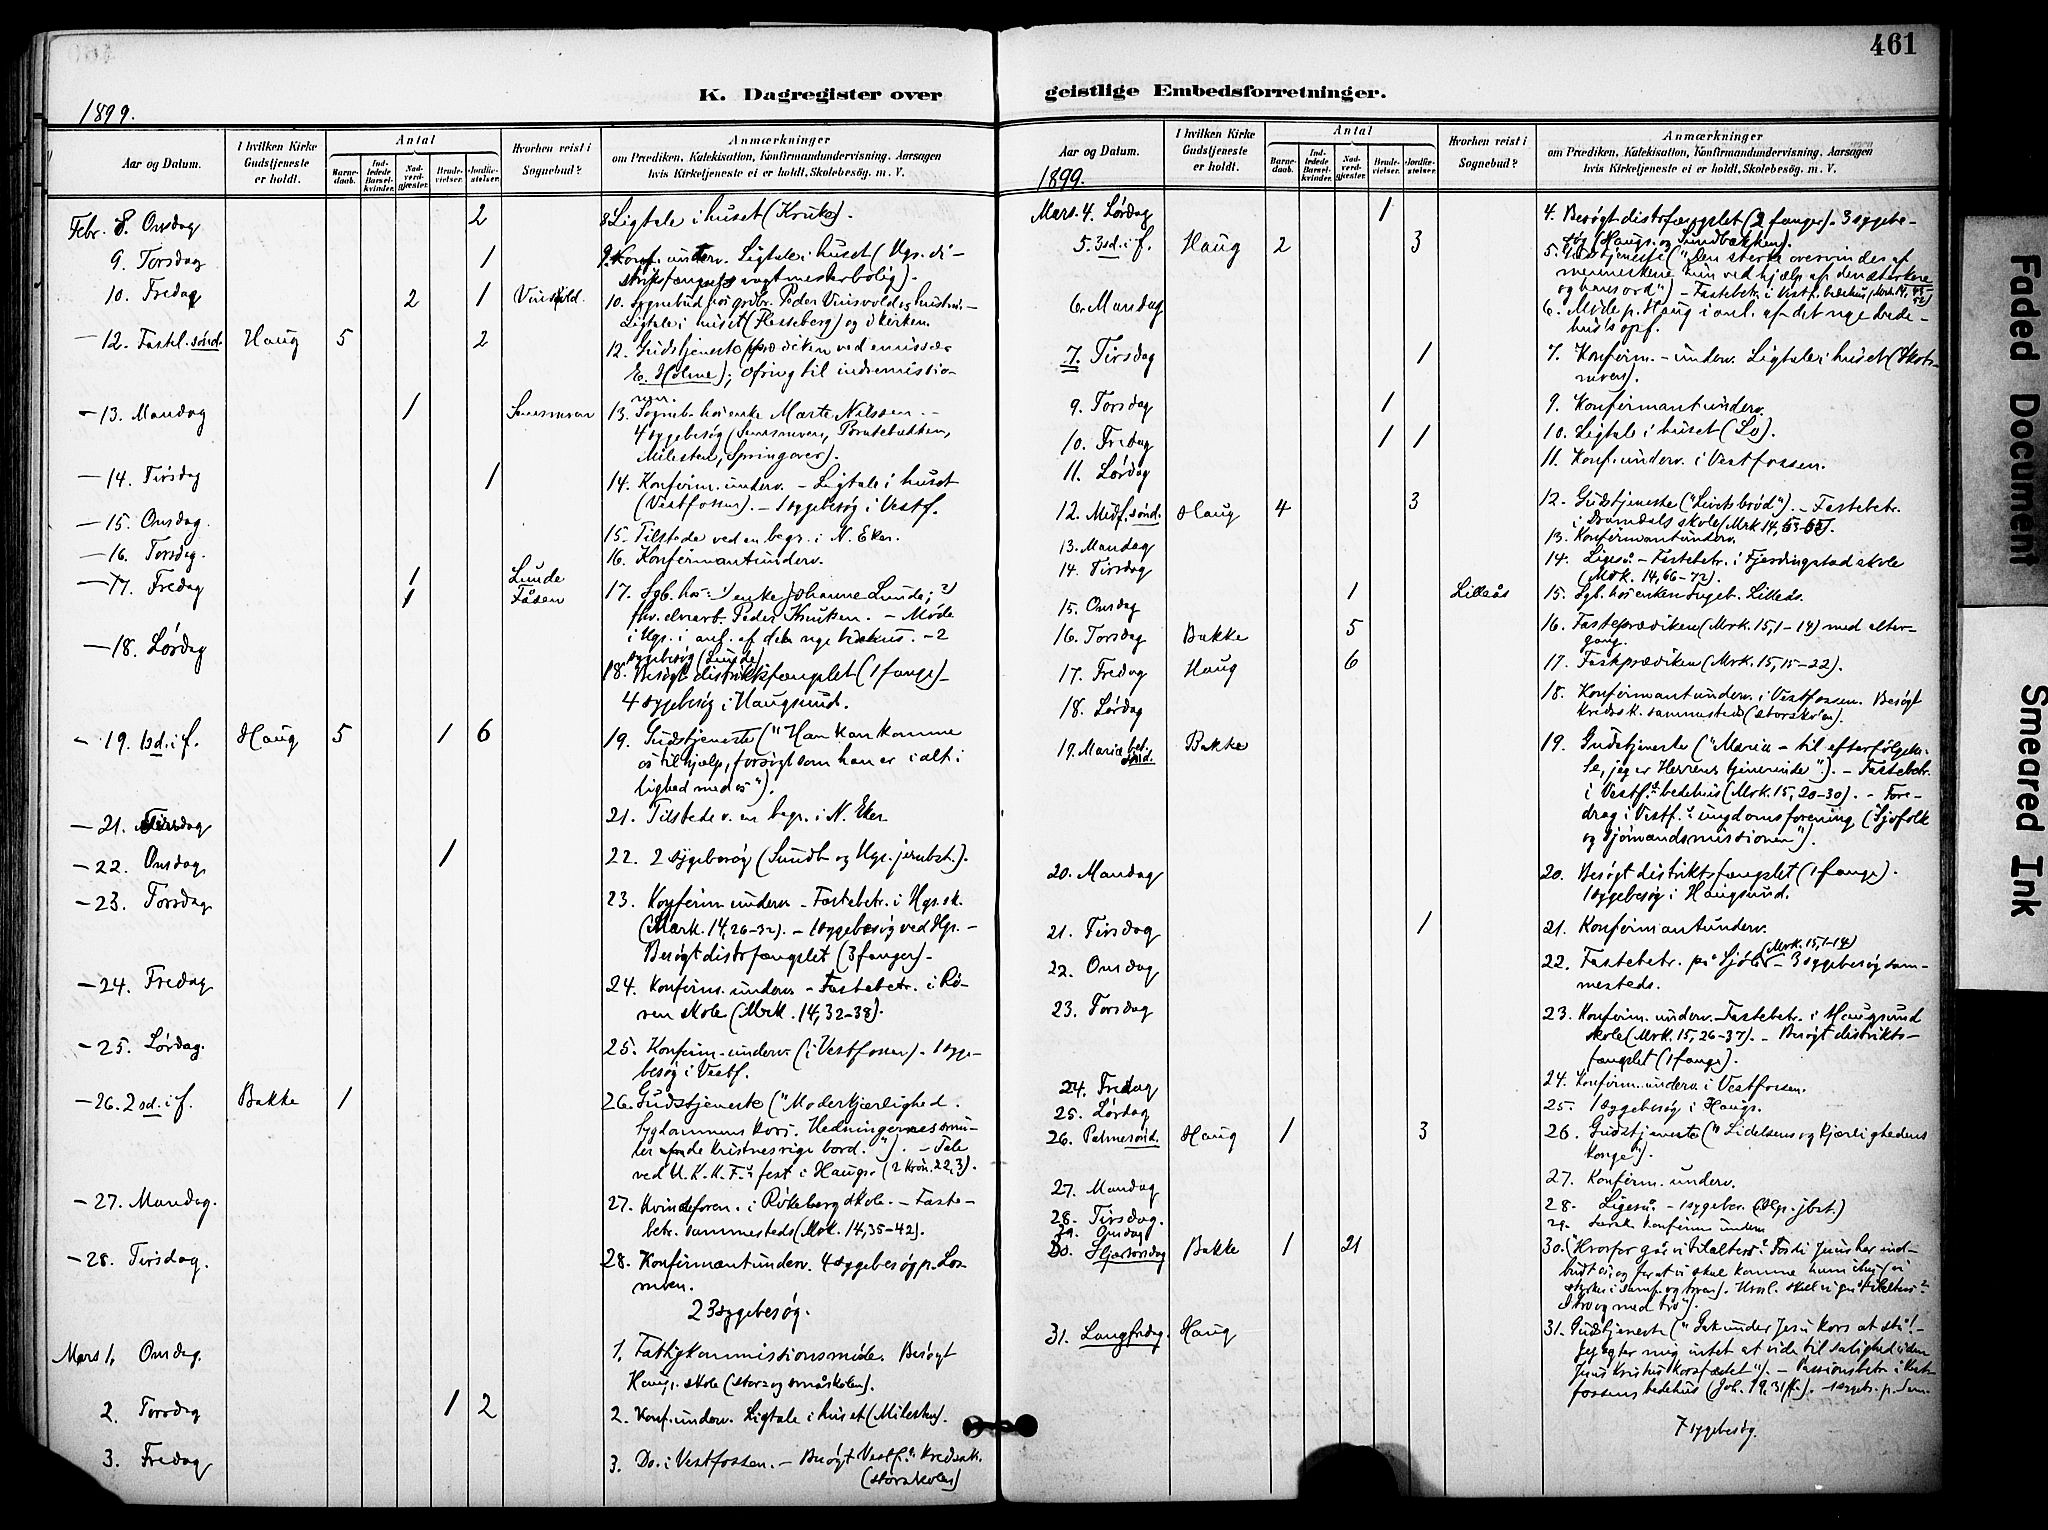 461
K. Dagregister over
geistlige Embedsforretninger.
1899.
Aar og Datum.
I hvilken Kirke Gudstjeneste er holdt.
Antal
Barnedaab.
Indledede Barselkvinder.
Nadverdgjester.
Brudevielser.
Jordfæstelser.
Hvorhen reist i Sognebud?
Anmærkninger
om Prædiken, Katekisation, Konfirmandundervisning, Aarsagen
hvis Kirketjeneste ei er holdt, Skolebesøg. m. V.
Febr. 8. Onsdag 2 8. Ligtale i huset (Kruke).
9. Torsdag 1 9. Konf. underv. Ligtale i huset (Hgs. di-
striktsfængsels vagtmesterbolig).
10. Fredag 2 1 10. Sognebud hos grdbr. Peder
Ligtale i huset (Flesseberg) og i kirken.
12. Fastel. sønd. Haug 5 2 12. Gudstjeneste (prædiken ved emissær
E. Holme); ofring til indremissio-
nen.
13. Mandag 1 13. Sogneb. hos enke Marte Nilssen. -
4 sygebesøg
Milesten, Springover).
14. Tirsdag 1 14. Konfirm. underv. - Ligtale i huset
(Vestfossen). - 1 sygebesøg i Vestf.
15. Onsdag. 15. Tilstede ved en begr. i N. Eker.
16. Torsdag. 16. Konfirmantunderv.
17. Fredag 1 Lunde
1 Åsen 17. Sgb. hos: 1) enke Johanne Lunde; 2)
fhv. elvarb. Peder Kruken. - Møde
i Hgs. i anl. af det nye bedehus. - 2
sygebesøg (Lunde)
18. Lørdag 18. Besøgt distriktsfængslet (1 fange) -
4 sygebesøg i Haugsund.
19. 1 sd. i f. Haug 5 1 6 19. Gudstjeneste ("Han kan komme
os til hjælp, forsøgt som han er i alt i
lighed med os").
21. Tirsdag 21. Tilstede v. en begr. i N. Eker
22. Onsdag 1 22. 2 sygebesøg (Sundb. og Hgs. jernbst.).
23. Torsdag 23. Konfirm. underv. - Fastebetr. i Hgs. sk.
(Mark. 14, 26-32). - 1 sygebesøg ved Hgs. -
Besøgt distrfængslet (3 fanger) -
24. Fredag 24. Konfirm. underv. - Fastebetr. i Rø-
ren skole (Mrk. 14, 32-38).
25. Lørdag. 25. Konfirm. underv. (i Vestfossen) - 1 syge-
besøg i Vestf.
26. 2 sd. i f. Bakke 1 26. Gudstjeneste ("Moderkjærlighed.
Sygdommens kors. Hedningernes smu-
ler fra de kristnes rige bord."). - Tale
ved U. K. K. F.s fest i Haugs. (2 Krøn. 22, 3).
27. Mandag. 27. Kvindeforen. i Røkeberg skole. - Faste-
betr. sammesteds (Mrk. 14, 35-42).
28. Tirsdag. 28. Konfirmantunderv. 4 sygebesøg p. Los-
moen.
23 sygebesøg.
Mars 1. Onsdag. 1. Fattigkommissionsmøde. Besøgt
Haugs. skole (stor- og småskolen).
2. Torsdag 1 2 2. Konf. underv. Ligtale i huset (Milesten).
3. Fredag 3. Do. i Vestfossen. - Besøgt Vestf.s kredssk.
(storskolen)
Aar og Datum.
I hvilken Kirke Gudstjeneste er holdt.
Antal
Barnedaab.
Indledede Barselkvinder.
Nadverdgjester.
Brudevielser.
Jordfæstelser.
Hvorhen reist i Sognebud?
Anmærkninger
om Prædiken, Katekisation, Konfirmandundervisning, Aarsagen
hvis Kirketjeneste ei er holdt, Skolebesøg. m. V.
1899.
Mars 4. Lørdag 1 4. Besøgt distrfængslet (2 fanger). 3 sygebe-
søg (Haugs. og Sundbakken).
5. 3 sd. i f. Haug 2 3 5. Gudstjeneste ("Den stærke overvindes af
menneskene kun ved hjælp af den stærkere
og hans ord") - Fastebetr. i Vestf. bedehus
6. Mandag 6. Møde p. Haug i anl. af det nye bede-
hus's opf.
7. Tirsdag 1 7. Konfirm. - underv. Ligtale i huset
9. Torsdag 1 9. Konfirmantunderv.
10. Fredag 1 1 10. Ligtale i huset (Lo).
11. Lørdag 11. Konf. underv. i Vestfossen.
12. Midf. sønd. Haug 4 3 12. Gudstjeneste ("Livets brød"). - Fastebetr.
i Dramdals skole (Mrk 14, 53-65).
13. Mandag 13. Konfirmantunderv.
14. Tirsdag 14. Ligeså - Fastebetr. i Fjerdingstad skole
(Mrk. 14, 66-72).
15. Onsdag 1 Lilleås 15. Sgb. hos enken Ingeb. Lilleås.
16. Torsdag Bakke 5 16. Fasteprædiken (Mrk. 15, 1-14) med alter-
gang.
17. Fredag Haug 6 17. Fasteprædiken (Mrk. 15, 15-22).
18. Lørdag 18. Konfirmantunderv. i Vestfossen. Besøgt
kredssk. sammesteds (storskolen).
19. Mariæ bet. sønd. Bakke 19. Gudstjeneste ("Maria - til efterfølgel-
se, jeg er Herrens tjenerinde"). - Fastebetr.
i Vestf.s bedehus (Mrk. 15, 20-30). - Fore-
drag i Vestf.s ungdomsforening ("Sjøfolk
og sjømandsmissionen").
20. Mandag 20. Besøgt distriktsfængslet (1 fange).
1 sygebesøg i Haugsund.
21. Tirsdag 1 21. Konfirmantunderv.
22. Onsdag 22. Fastebetr. på Sjøli (Mrk. 15, 1-14) - 3 sygebesøg sam-
mesteds.
23. Torsdag 23. Konfirm. underv. - Fastebetr. i Haugsund
skole (Mrk. 15, 26-37). - Besøgt distrikts-
fængslet (1 fange).
24. Fredag 24. Konfirm. underv. i Vestfossen.
25. Lørdag 25. 1 sygebesøg i Haugs.
26. Palmesønd. Haug 1 3 26. Gudstjeneste ("Lidelsens og kjærlighedens
konge").
27. Mandag 27. Konfirm. underv.
28. Tirsdag. 28. Ligeså. - 1 sygebes. (Hgs. jbst.)
29. Onsdag 29. Konfirm. underv.
30. Skjærtorsdag Bakke 1 21 30. ("Hvorfor går vi til alters? Fordi Jesus har ind-
budt os, og for at vi skal komme ham ihu,
styrkes i samf. og troen). Hvorl. skal vi gå til alters?
I tro og med tro").
31. Langfredag. Haug 31. Gudstjeneste ("Gak under Jesu kors at stå! -
Jeg agter mig intet at vide til salighed uden
Jesus Kristus korsfæstet"). - Passionsbetr. i Vest-
fossens bedehus (Joh. 19, 31 ff.). - 1 sygebes. p.
7 sygebesøg.
Faded Document
Smeared Ink